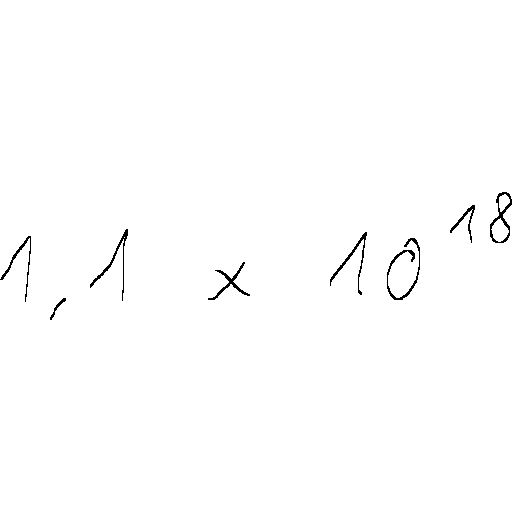 1,1 × 10¹⁸